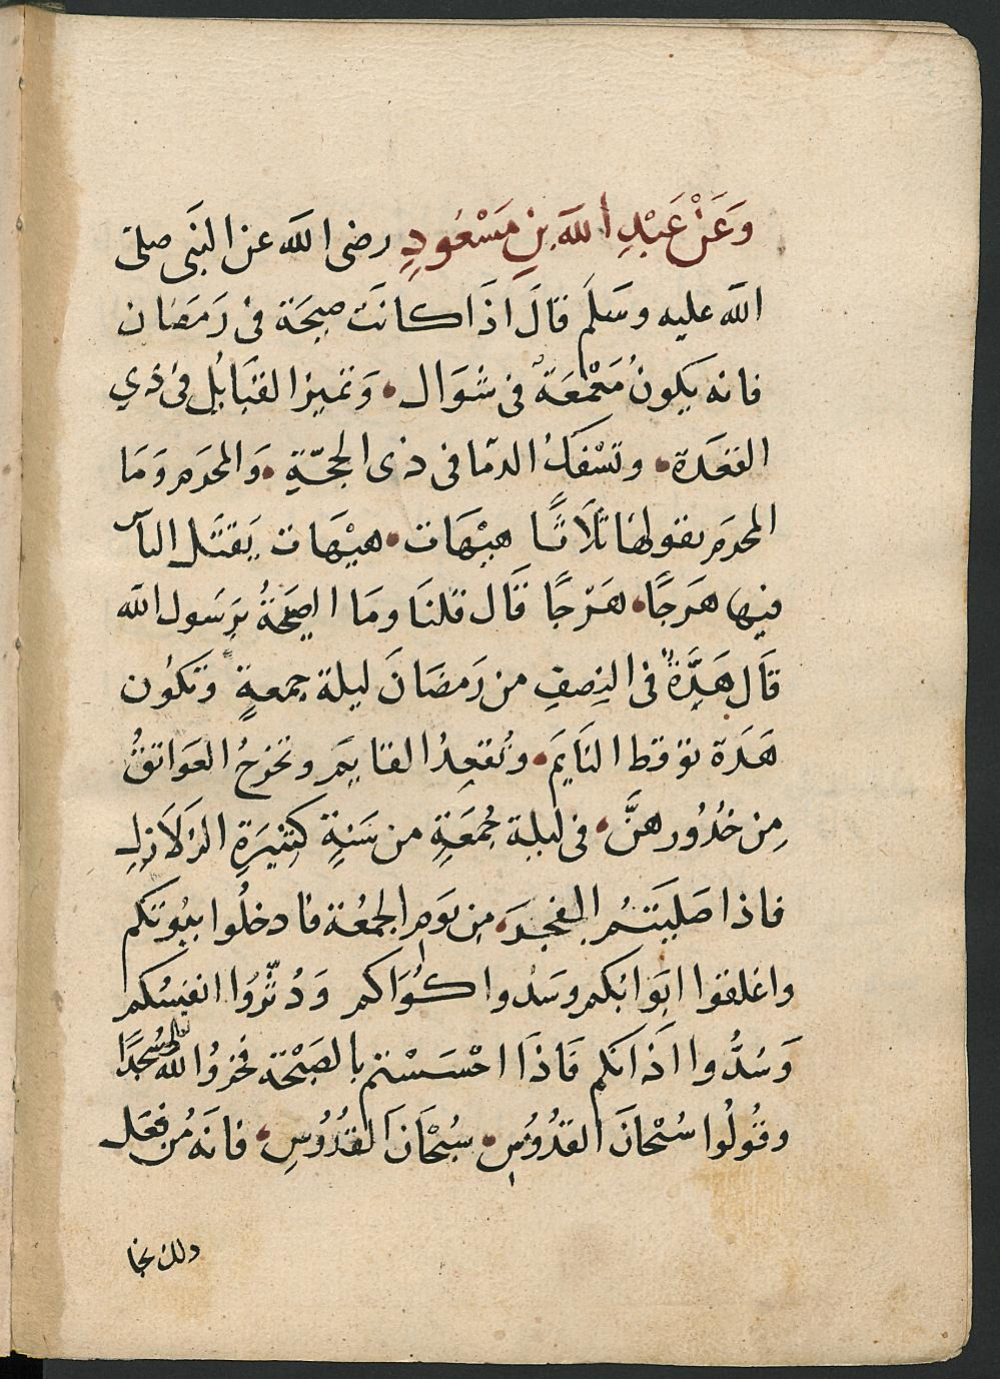 وَعَنْ عَبْدِ اللَّه بنِ مَسْعُودٍ رضى الله عن النَبى صلى
الله عليه وسَلم قالَ اذَا كانَت صيحَة فى رَمَضان
فانه يكونُ مَعْمَعَةٌ فى شوَال • وَتميز القبَايُل فى ذي
القعَدة • وتسْفكُ الدمَا فى ذى الحجّةِ • وَالمحرَم وَمَا
المحرَم يقولهَا ثَلَاثًا هيْهَات • هيْهَات يَقتَل الناس
فيها هَرجًا • هَرْجًا قَال قلنَا ومَا الصيحَةُ يرَسَول الله
قَال هَدَّةٌ فى النِصفِ من رَمضَانَ ليلة جمعةٍ وتكُون
هَدَة توقظ النَايمَ • وتُقعِدُ القايمَ وتخرجُ العَوَاتقُ
مِن خدُورهنَّ • فى ليلة جُمعَةٍ من سَنةٍ كثيرَةِ الزلَازلِ
فاذا صَليَتمُ الفجرَ • مِن يَومِ الجمعُة فادخلُوا بيُوتكم
واغلقوا ابَوَابكم وسَدُوا كُوَاكم وَدُثّرُوا انفسُكم
وَسُدُّوا اَذَانكم فَاذَا احْسَسْتم بالصَيْحَة فخروُا لله تعالى سُجدًا
وقُولُوا سُبْحَانَ القدُوُسِ • سُبْحَانَ القدُوُسِ • فانَه مُن فعَل
دلك نجا